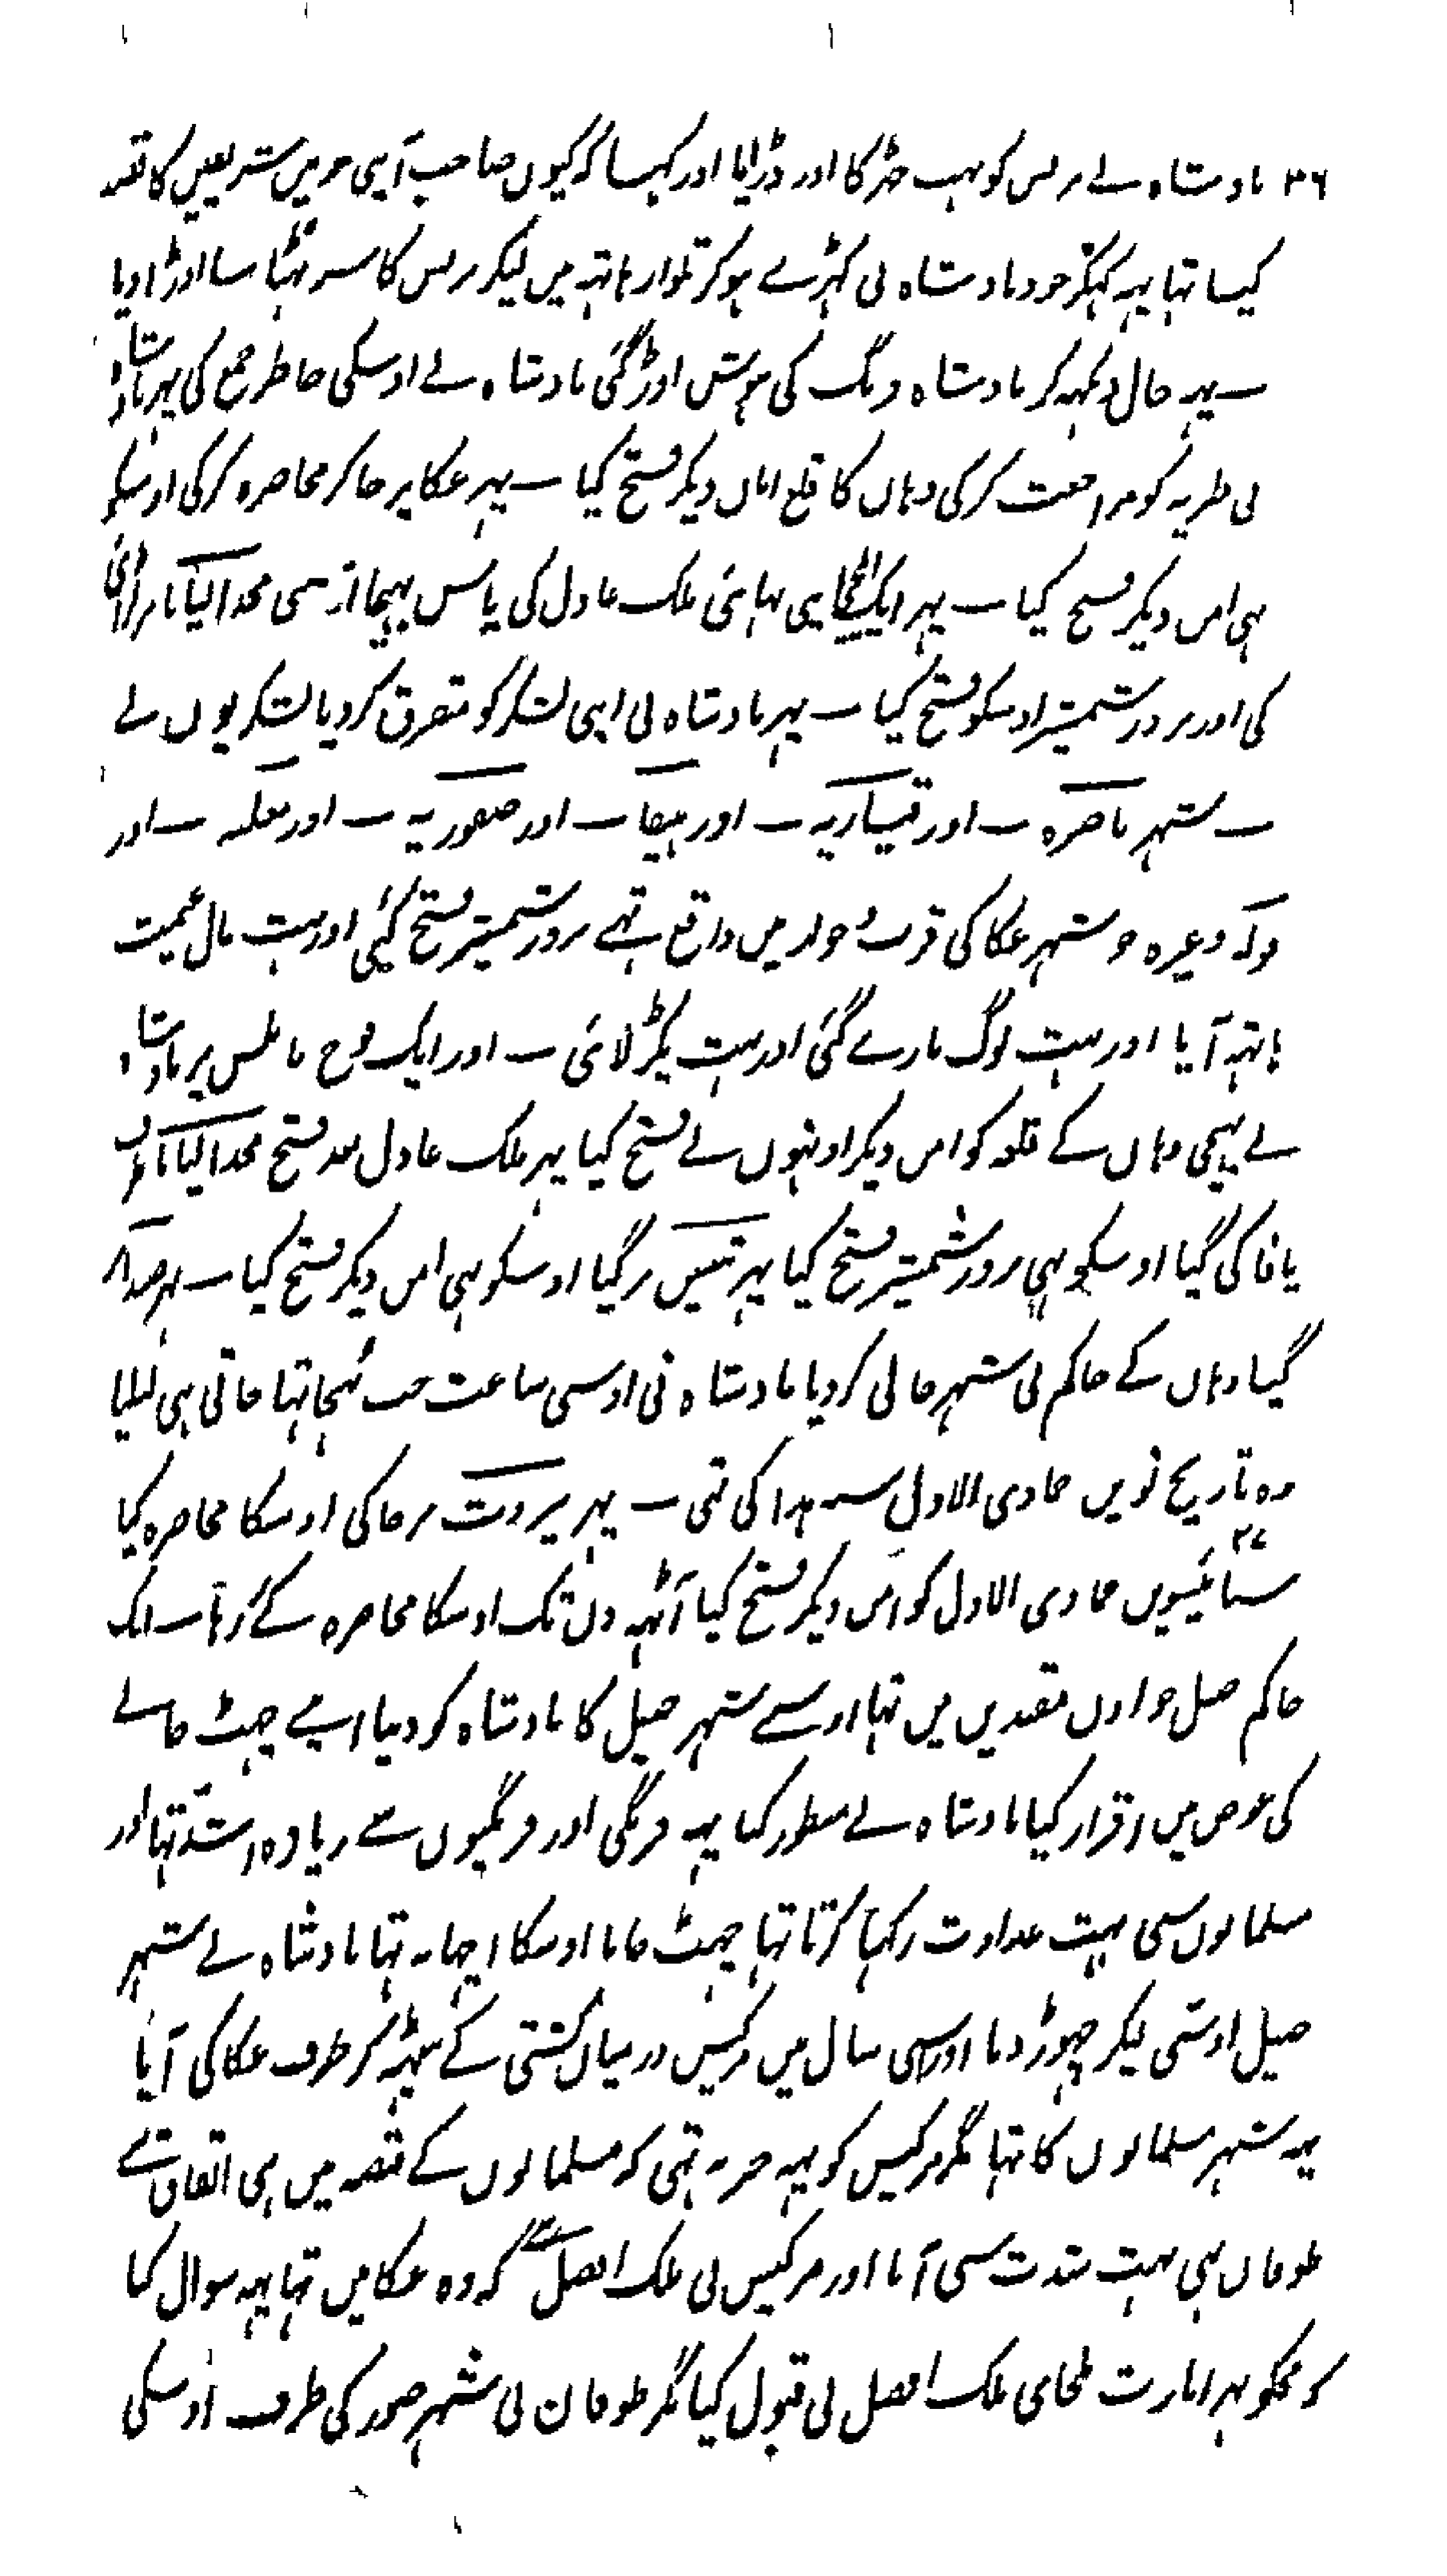 ۳۶ بادشاہ نے برنس کو بہت جھڑکا اور ڈرایا اور کہا کہ کیوں صاحب آپہی حرمین شریفین کا قصد
کیسا تہا یہہ کہکر خود بادشاہ نی کہڑے ہوکر تلوار ہاتہہ میں لیکر برنس کا سر بہٹا سا اوڑا دیا
یہہ حال دیکہہ کر بادشاہ فرنگ کی ہوش اوڑ گئی بادشاہ نے اوسکی خاطر جمع کی پہر بادشاہ
نی طبریہ کو مراجعت کرکی وہاں کا قلع اماں دیکر فتح کیا ۔ پہر عکا پر جاکر محاصرہ کرکی اوسکو
بہی امن دیکر فتح کیا ۔ پہر ایک ایلچی اپنی بہائی ملک عادل کی پاس بہیجا اوسنی مجدالیابا پر لڑائی
کی اور بزور شمشیر اوسکو فتح کیا ۔ پہر بادشاہ نی اپنی لشکر کو متفرق کردیا لشکریوں نے
۔ شہر ناصرہ ۔ اور قیساریہ ۔ اور ہیفا ۔ اور صفوریہ ۔ اور معلیہ ۔ اور
فولہ وغیرہ جو شہر عکا کی قرب و جوار میں واقع تہے بزور شمشیر فتح کئی اور بہت مال غنیمت
ہاتہہ آیا اور بہت لوگ مارے گئی اور بہت پکڑ لائی ۔ اور ایک فوج نابلس پر بادشاہ
نے بہیجی وہاں کے قلعہ کو امن دیکر اونہوں نے فتح کیا پہر ملک عادل بعد فتح مجدالیابا طرف
یافا کی گیا اوسکو بہی بزور شمشیر فتح کیا پہر تبنیں پر گیا اوسکو بہی امن دیکر فتح کیا ۔ پہر صیدا
گیا وہاں کے حاکم نی شہر خالی کردیا بادشاہ نی اوسی ساعت جب پہنچا تہا جاتی ہی لیلیا
وہ تاریخ نویں جمادی الاول سنہ ہذا کی تہی ۔ پہر بیروت پر جاکی اوسکا محاصرہ کیا
ستائیسویں ۲۷ جمادی الاول کو امن دیکر فتح کیا آٹہہ دن تک اوسکا محاصرہ کئے رہا ۔ ایک
حاکم جبیل جو اون مقیدین میں تہا اوسنے شہر جبیل کا بادشاہ کو دینا اپنے چہٹ جانے
کی عوض میں اقرار کیا بادشاہ نے منظور کیا یہہ فرنگی اور فرنگیوں سے زیادہ اشد تہا اور
مسلمانوں سی بہت عداوت رکہا کرتا تہا چہٹ جانا اوسکا اچہا نہ تہا بادشاہ نے شہر
جبیل اوسنی لیکر چہوڑ دیا اور اسی سال میں مرکیس درمیان کشتی کے بیٹہہ کر طرف عکا کی آیا
یہہ شہر مسلمانوں کا تہا مگر مرکیس کو یہہ خبر نہ تہی کہ مسلمانوں کے قبضہ میں ہی اتفاق سے
طوفان بہی بہت شدت سی آیا اور مرکیس نی ملک افضل سے کہ وہ عکا میں تہا یہہ سوال کیا
کہ مجکو پہر اجازت ملجای ملک افضل نی قبول کیا مگر طوفان نی شہر صور کی طرف اوسکی